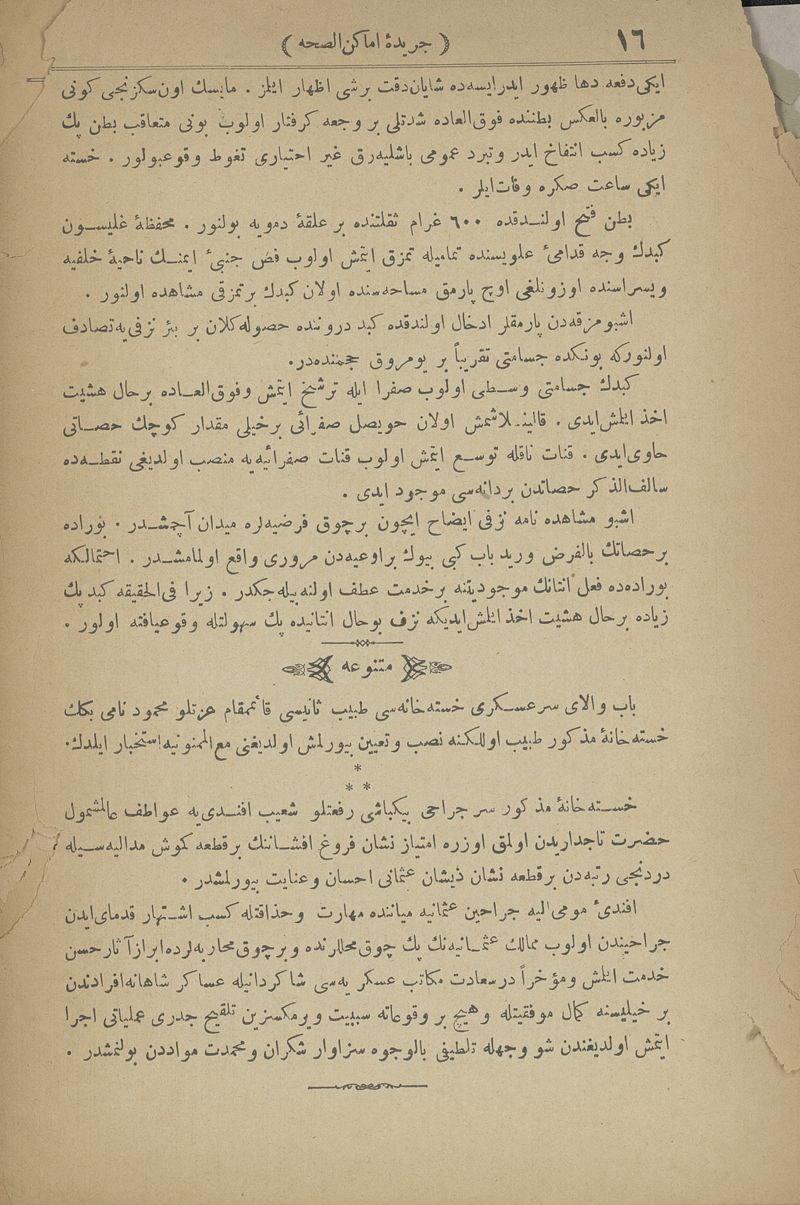 ١٦
﴿ جريدۀ اماكن‌الصحه ﴾
ايكى دفعه دها ظهور ايدرايسه‌ده شايان‌دقت برشى اظهار ايلمز . مايسك اون سكزنجى كونى
مزبوره بالعكس بطننده فوق‌العاده شدتلى بر وجعه كرفتار اولوب بونى متعاقب بطن پك
زياده كسب انتفاخ ايدر وتبرد عمومى باشليه‌رق غير اختيارى تغوط وقوعبولور . خسته
ايكى ساعت صكره وفات‌ايلر .
بطن فتح اولنـدقده ٦٠٠ غرام ثقلتنده بر علقۀ دمويه بولنور . محفظۀ غليسـون
كبدك وجه قدامىٔ علويسنده تماميله تمزق ايتمش اولوب فص جنبىٔ ايمنـك ناحيۀ خلفيه
ويسراسنده اوزونلغى اوچ پارمق مساحه‌سنده اولان كبدك بر تمزقى مشاهده اولنور .
اشبو مزقه‌دن پارمقلر ادخال اولندقده كبد دروننده حصوله‌كلان بر بئر نزفى‌يه تصادف
اولنوركه بونكده جسامتى تقريباً بر يومروق حجمنده‌در.
كبدك جسامتى وسـطى اولوب صفرا ايله ترشح ايتمش وفوق‌العـاده برحال هشيت
اخذ ايلمش‌ايدى . قالينـلاشمش اولان حويصل صفرائى برخيلى مقدار كوچك حصـاتى
حاوى‌ايدى . قنات ناقله توسـع ايتمش اولوب قنات صفرائيه‌يه منصب اولديغى نقطـه‌ده
سالف‌الذكر حصاتدن بردانه‌سى موجود ايدى .
اشبو مشاهده نامه نزفى ايضاح ايچون برچوق فرضيه‌لره ميدان آچمشـدر . بوراده
برحصاتك بالفرض وريد باب كبى بيوك براوعيه‌دن مرورى واقع اولمامشـدر . احتمالكه
بوراده‌ده فعل انتانك موجوديتنه برخدمت عطف اولنه‌بيله‌جكدر . زيرا فى‌الحقيقه كبد پك
زياده برحال هشيت اخذ ايلمش‌ايديكه نزف بوحال انتانيده پك سهولتله وقوعيافته اولور .
متنوعه
باب والاى سرعسـكرى خسته‌خانه‌سى طبيب ثانيسى قائممقام عزتلو محمود نامى بكك
خسته‌خانۀ مذكور طبيب اوللكنه نصب وتعيين بيورلمش اولديغنى مع‌الممنونيه استخبار ايلدك.
*
* *
خسـته‌خانۀ مذكور سر جراحى بيكباشى رفعتلو شعيب افنـدى‌يه عواطف عالمشمول
حضرت تاجداريدن اولمق اوزره امتياز نشان فروغ افشـاننك برقطعه كوش مداليه‌سـيله
دردنجى رتبه‌دن برقطعه نشان ذيشان عثمانى احسان وعنايت بيورلمشدر .
افندىٔ مومى‌اليه جراحين عثمانيه مياننده مهارت وحذاقتله كسب اشـتهار قدماى‌ايدن
جراحيندن اولوب ممالك عثمـانيه‌نك پك چوق محللرنده وبرچوق محاربه‌لرده ابراز آثارحسن
خدمت ايلمش ومؤخراً درسعادت مكاتب عسكريه‌سى شاكردانيله عساكر شاهانه افرادندن
بر خيليسنه كمال موفقيتله وهيچ بر وقوعاته سببيت ويرمكسزين تلقيح جدرى عملياتى اجرا
ايتمش اولديغندن شو وجهله تلطيفى بالوجوه سزاوار شكران ومحمدت مواددن بولنمشدر .